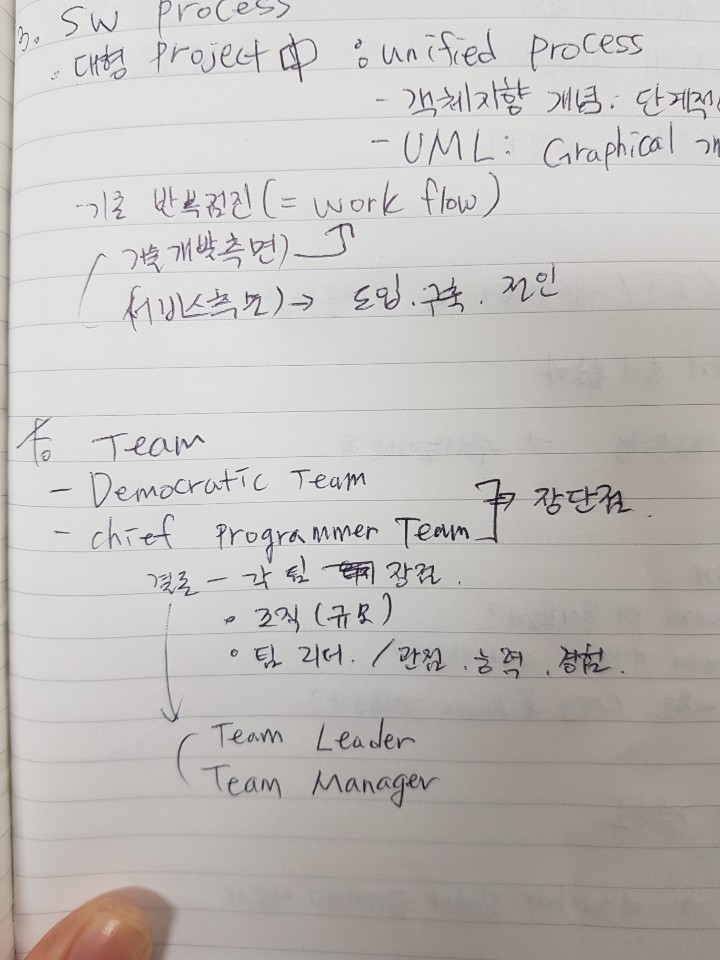 3. SW process
· 대형 project 中 : unified process
- 객체지향 개념. 단계적
- UML: Graphical 개
- 기준 반복점진 (= work flow)
기술개발측면)
서비스측면) → 도입. 구축. 전인
Team
- Democratic Team
- chief programmer Team ⇒ 장단점.
결론 - 각 팀 장점.
• 조직 (규모)
• 팀 리더. / 관점. 능력. 경험.
Team Leader
Team Manager